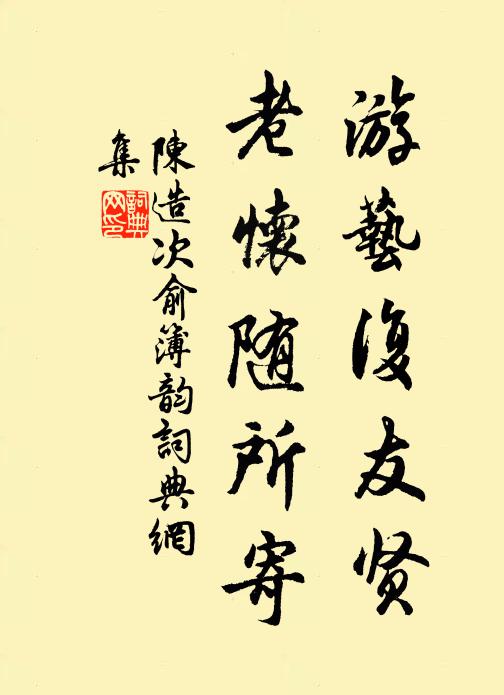 游藝復友贤
老懷随所寄
陳造次俞簿韵詞典網
集
詞典网印